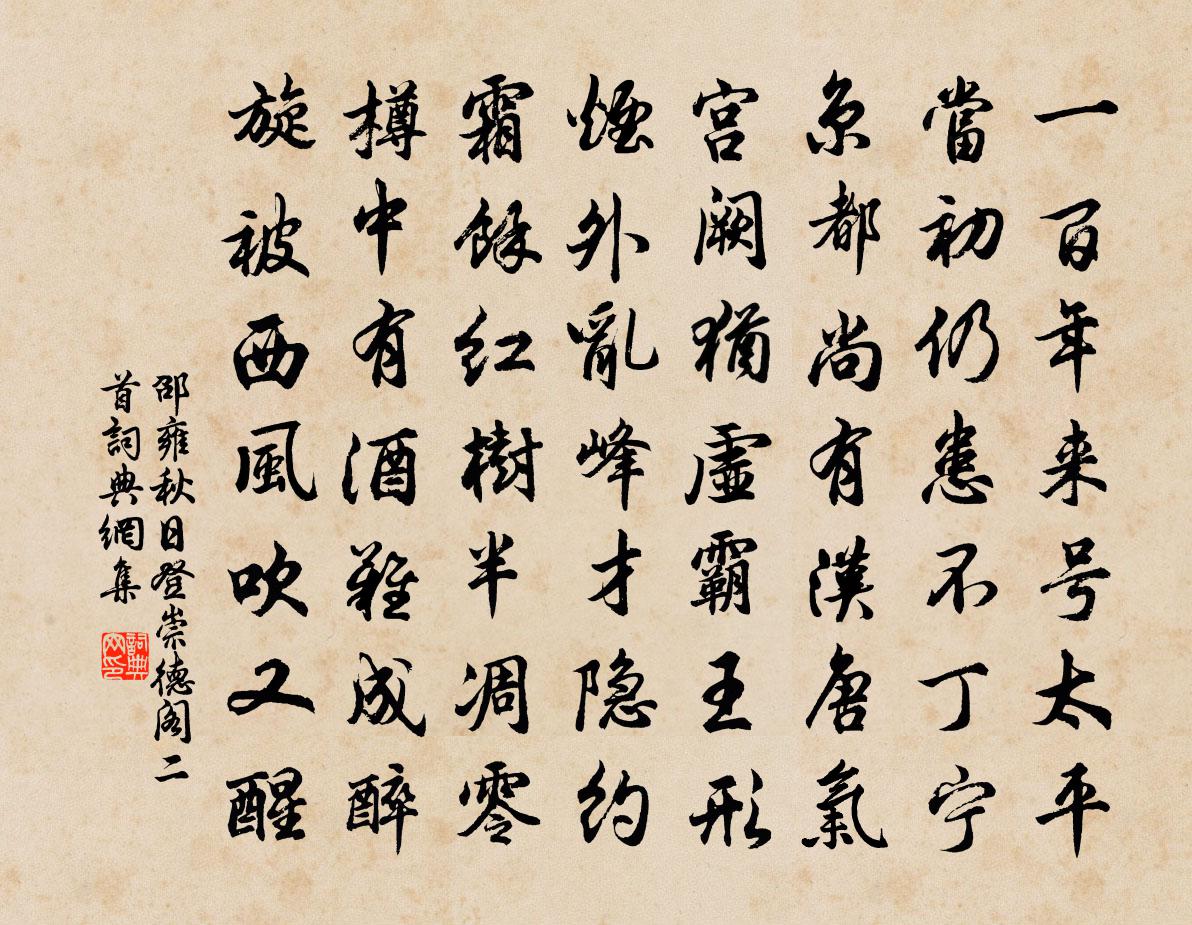 一百年来号太平
當初仍患不丁宁
京都尚有漢唐氣
宮闕猶虛霸王形
煙外亂峰才隐約
霜餘紅樹半凋零
樽中有酒難成醉
旋被西風吹又醒
邵雍秋日登崇德阁二
首詞典網集
詞典
网印